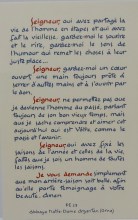 Seigneur qui avez partagé la
vie de l'homme en étapes et qui avez
fait la vieillesse, gardez-moi le sourire
et le rire, gardez-moi le sens de
l'humour qui remet les choses à leur
juste place...
Seigneur, gardez-moi un cœur
ouvert, une main toujours prête à
serrer d'autres mains et à s'ouvrir pour
donner.
Seigneur, ne permettez pas que
je devienne l'homme du passé, parlant
toujours de son bon vieux temps, mais
que je sache comprendre et aimer cet
aujourd'hui qui est Vôtre, comme le
passé et l'avenir.
Seigneur qui avez fixé les
saisons de l'année et celles de la vie,
faites que je sois un homme de toutes
les saisons.
Je vous demande simplement
que mon arrière-saison soit belle, afin
qu'elle porte témoignage à votre
beauté.